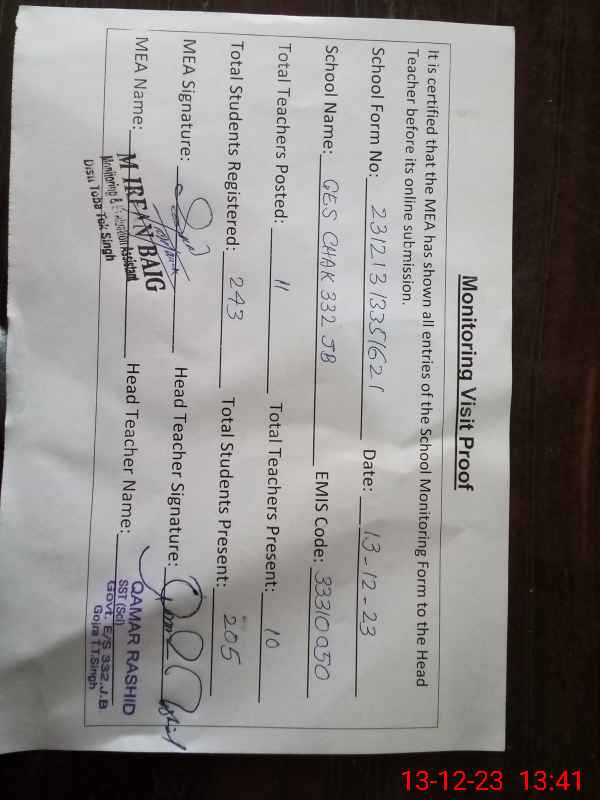 Monitoring Visit Proof
It is certified that the MEA has shown all entries of the School Monitoring Form to the Head
Teacher before its online submission.
School Form No: 231213 13351621 Date: 13-12-23
School Name: GES CHAK 332 JB EMIS Code: 33310050
Total Teachers Posted: 11 Total Teachers Present: 10
Total Students Registered: 243 Total Students Present: 205
MEA Signature: Head Teacher Signature:
MEA Name: M IRFAN BAIG Head Teacher Name: QAMAR RASHID
Monitoring & Evaluation Assistant
Distt Toba Tek Singh
SST (Sci)
Govt. E/S 332 J.B
Gojra T.T.Singh
13-12-23 13:41